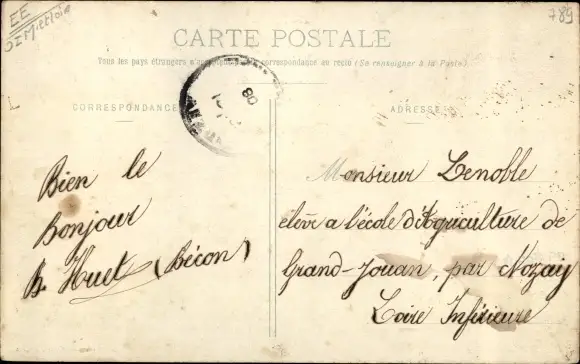 EE
789
CARTE POSTALE
Tous les pays étrangers n'acceptent pas la correspondance au recto (Se renseigner à la Poste)
CORRESPONDANCE
ADRESSE
Bien le
Bonjour
B. Huet (Bécon)
Monsieur Lenoble
élève a l'école d'Agriculture de
Grand-Jouan, par Nozay
Loire Inférieure